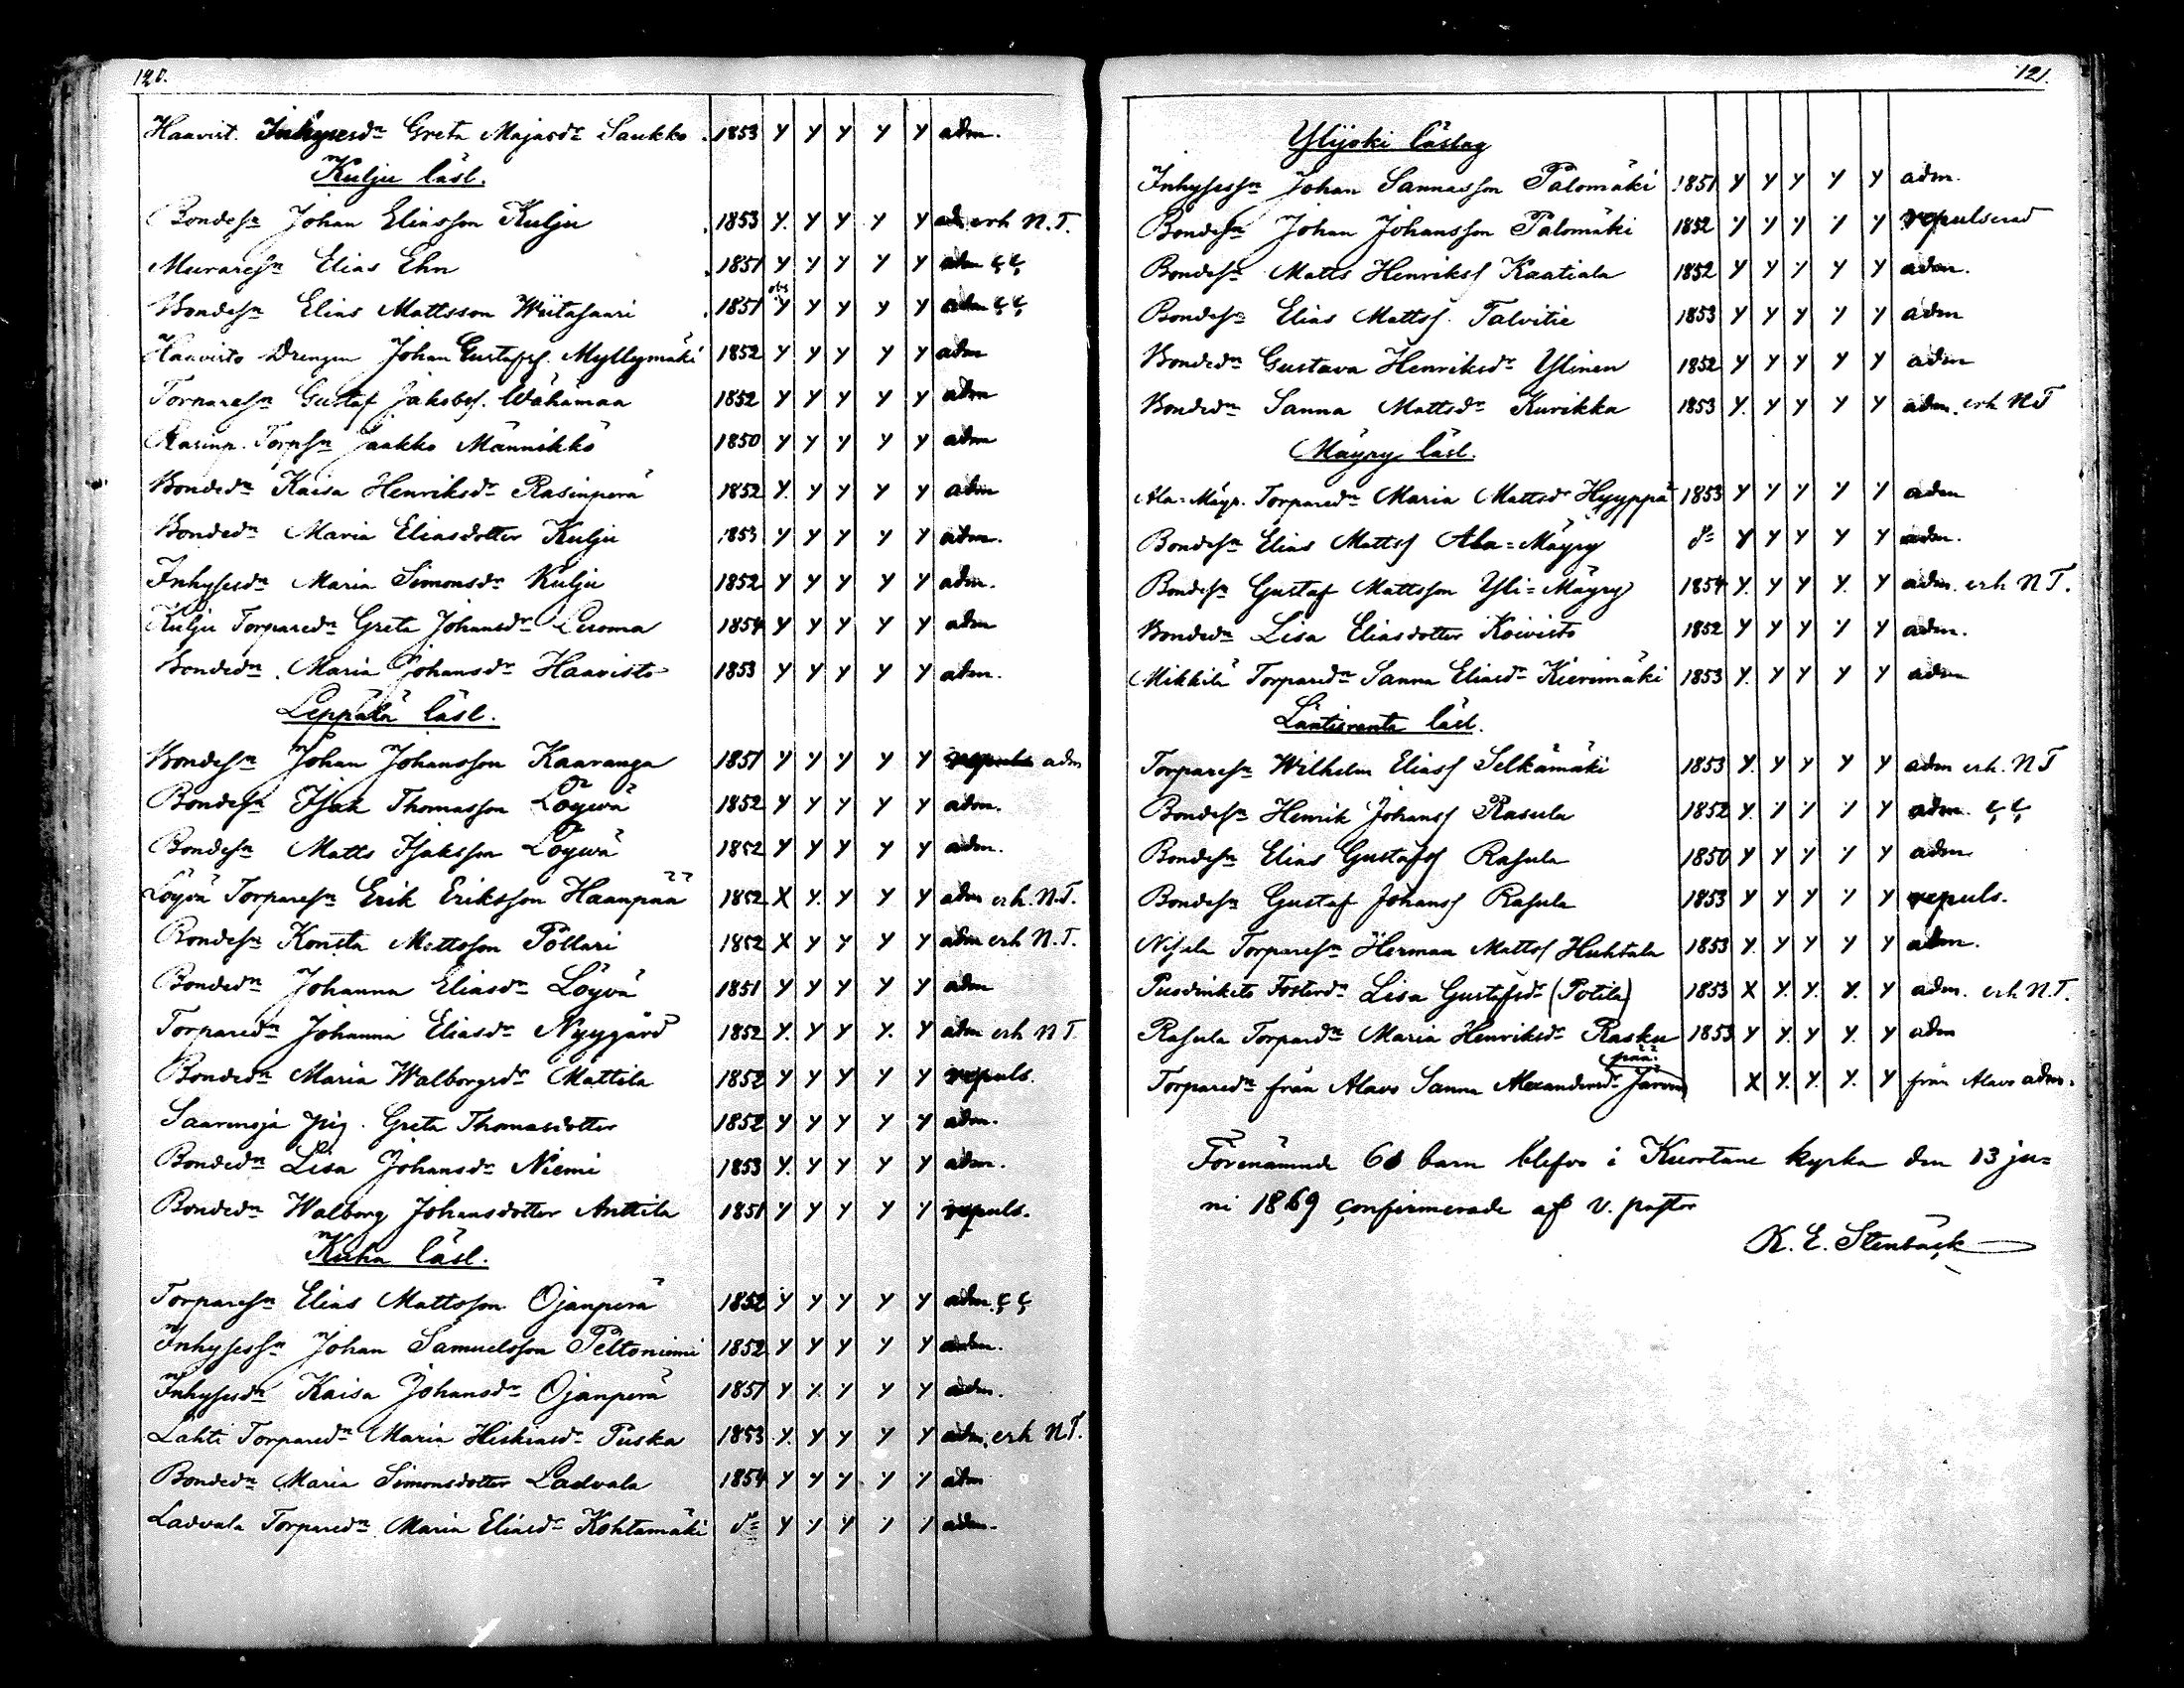 120.
Haavist. Inhysesdn Greta Majasdr Saukko 1853 y y y y y adm.
Kulju läsl.
Bondesn Johan Eliasson Kulju 1853 y. y y y y ad. erh N.T.
Muraresn Elias Ehn 1851 y y y y y adm
Bondesn Elias Mattsson Wiitasaari 1851 obs y y y y y adm
Haavisto Drengen Johan Gustafss. Myllymäki 1852 y y y y y adm
Torparesn Gustaf Jakobss. Wähämaa 1852 y y y y y adm
Rasinp. Torpsn Jaakko Männikkö 1850 y y y y y adm
Bondedn Kaisa Henriksdr Rasinperä 1852 y. y y y y adm
Bondedn Maria Eliasdotter Kulju 1853 y y y y y adm.
Inhysesdn Maria Simonsdr Kulju 1852 y y y y y adm.
Kulju Torparedn Greta Johansdr Luoma 1854 y y y y y adm
Bondedn Maria Johansdr Haavisto 1853 y y y y y adm.
Leppälä läsl.
Bondesn Johan Johansson Kaaranga 1851 y y y y y adm
Bondesn Isak Thomasson Löywä 1852 y y y y y adm.
Bondesn Matts Isaksson Löywä 1852 y y y y y adm.
Löyvä Torparesn Erik Eriksson Haanpää 1852 X y. y y y adm erh. N.T.
Bondesn Konsta Mattsson Pöllari 1852 X y y y y adm erh N.T.
Bondedn Johanna Eliasdr Löyvä 1851 y y y y y adm
Torparedn Johanna Eliasdr Nyygård 1852 y. y y y. y adm erh N T
Bondedn Maria Walborgsdr Mattila 1852 y y y y y repuls.
Saarensja pig. Greta Thomasdotter 1852 y y y y y adm.
Bondedn Lisa Johansdr Niemi 1853 y. y y y y adm.
Bondedn Walborg Johansdotter Anttila 1851 y y y y y repuls.
Kuha läsl.
Torparesn Elias Mattsson Ojanperä 1852 y y y y y adm.
Inhysessn Johan Samuelsson Peltoniemi 1852 y y y y y adm.
Inhysesdn Kaisa Johansdr Ojanperä 1851 y y. y y y adm.
Lahti Torparedn Maria Hiskiasdr Puska 1853 y. y y y y adm. erh N.T.
Bondedn Maria Simonsdotter Ladvala 1854 y y y y y adm
Ladvala Torparedn Maria Eliasdr Kohtamäki do y y y y y adm.
121.
Ylijoki läslag
Inhysessn Johan Sannasson Palomäki 1851 y y y y y adm.
Bondesn Johan Johansson Palomäki 1852 y y y y y repulserad
Bondesn Matts Henrikss Kaatiala 1852 y y y y y adm.
Bondesn Elias Mattss. Talvitie 1853 y y y y y adm
Bondedn Gustava Henriksdr Ylinen 1852 y y y y y adm
Bondedn Sanna Mattsdr Kurikka 1853 y. y y y y adm. erh N T
Mäyry läsl.
Ala=Mäyr. Torparedn Maria Mattsdr Hyyppä 1853 y y y y y adm
Bondesn Elias Mattss Ala=Mäyry do y y y y y adm.
Bondesn Gustaf Mattsson Yli=Mäyry 1854 y. y y y. y adm. erh N T.
Bondedn Lisa Eliasdotter Koivisto 1852 y y y y y adm.
Mikkilä Torparedn Sanna Eliasdr Kierimäki 1853 y. y y y y adm
Länsiranta läsl.
Torparesn Wilhelm Eliass Selkämäki 1853 y. y y y y adm erh. N T
Bondesn Henrik Johanss Rasula 1852 y. y y y y adm.
Bondesn Elias Gustafss Rasula 1850 y y y y y adm
Bondesn Gustaf Johanss Rasula 1853 y y y y y repuls.
Nisula Torparesn Herman Mattss Huhtala 1853 y. y y y y adm.
Fosterdn Lisa Gustafsdr (Potila) 1853 X y. y. y. y adm. erh N.T.
Rasula Torpardn Maria Henriksdr Rasku 1853 y y. y y. y adm
Torparedn från Alavo Sanna Alexandersdr Järvenpää. X y. y. y. y från Alavo adm.
Förenämnde 60 barn blefvo i Kuortane kyrka den 13 ju=
ni 1869 confirmerade af v. pastor
K. E. Stenbäck